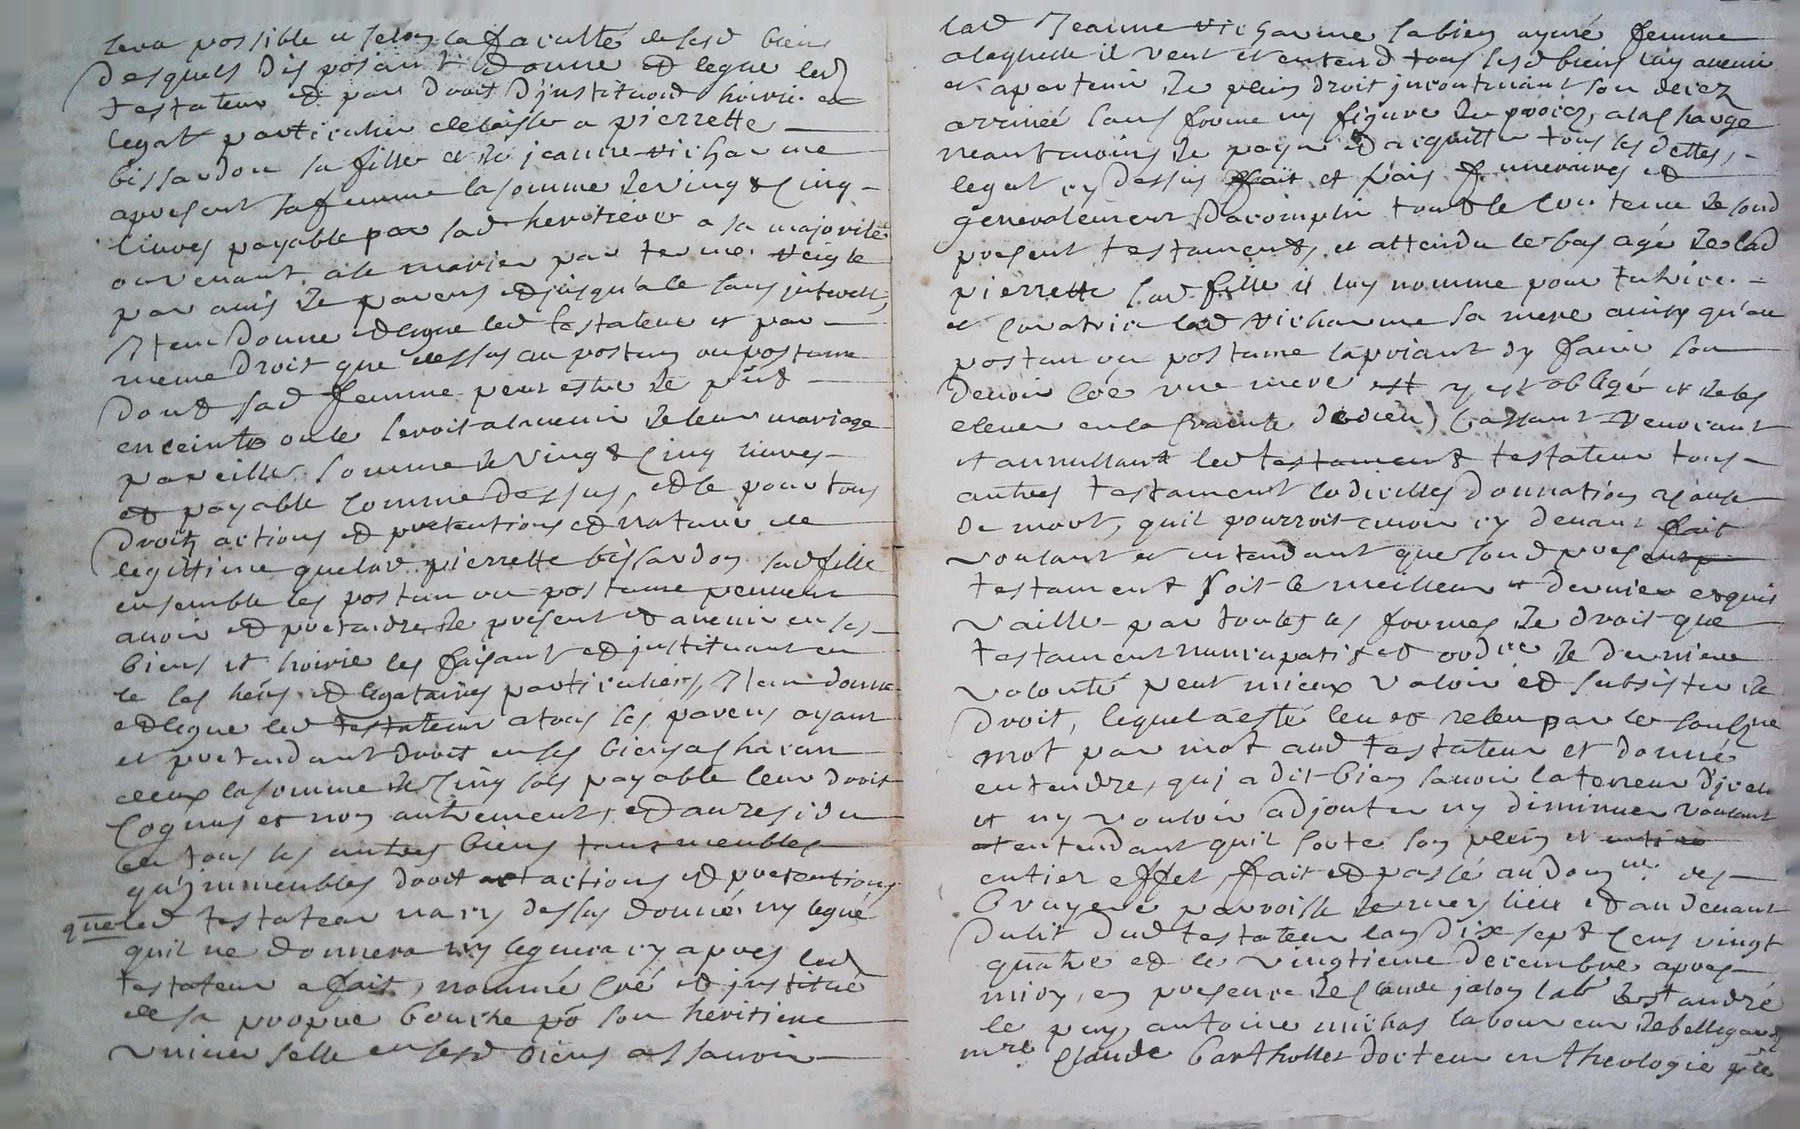 sera possible et selon la faculté de sesd biens
desquels disposant donne et legue led
testateur et par droit d'justituon hoirie et
legat particulier delaisse a pierrette
bissardon sa fille et de jeanne vicharme
apresent sa femme la somme de vingt cinq
livres payable par sad heretiere a sa majorité
ou venant a se marier par terme reigle
par amis de parens et jusqu'a le sans jnterest,
Jtem donne et legue led testateur et par
meme droit que dessus au postum ou postume
dont sad femme peut estre de pnt
enceinte ou le seroit a lavenir de leur mariage
pareille somme de vingt cinq livres
et payable comme dessus, et le pour tous
droits actions et pretentions et nature de
legittime que lad pierrette bissardon sad fille
ensemble les postum ou postume peuvent
avoir et pretendre de present et avenir en ses
biens et hoirie les faisant et justituant en
ce ses heirs et legataires particuliers, Jtem donne
et legue led testateur a tous ses parens ayant
et pretendant droit en ses biens a chacun
deux la somme de cinq sols payable leur droit
cognus et non autrement, et au residu
en tous ses autres biens tant meubles
qu'jmmeubles droit et actions et pretentions
que led testateur na cy dessus donné ny legué
quil ne donnera ny leguera cy apres led
testateur a fait, nommé creé et justitué
de sa propre bouche po son heritiere
universelle en sesd biens assavoir
lad Jeanne vicharme sa bien aymé femme
a laquelle il veut et entend tous sesd biens luy avenir
et apartenir de plein droit jncontinant son decez
arrivée sans forme ny figure de procez, a la charge
neantmoins de payer et acquitter tous ses dettes,
legat cy dessus fait et frais funeraires et
generalement d'acomplir tout le contenu de sond
present testament, et attendu le bas agé de lad
pierrette sad fille il luy nomme pour tutrice
et curatrice lad vicharme sa mere ainsy qu'au
postum ou postume la priant d'y faire son
devoir coe une mere est y est obligé et de les
elever en la crainte de dieu, cassant revocant
et annullant led testament testateur tous
autres testament codicilles donnation a cause
de mort, quil pourroit avoir cy devant fait
voulant et entendant que sond present
testament soit le meilleur et dernier et quil
vaille par toutes les formes de droit que
testament nuncupatif et ordre de derniere
volonté peut mieux valoir et subsister de
droit, lequel a esté leu et releu par le soubsne
mot par mot aud testateur et donné
entendre, qui a dit bien savoir la teneur d'jcelu
et ny vouloir adjouter ny diminuer voulant
et entendant quil sorte son plein et entire
entier effet, fait et passé au domlle des
bruyere parroisse de mery lieu et au devant
du lit dud testateur lan dix sept cens vingt
quatre et le vingtieme decembre apres
midy, en presence de claude jalon labr de st andré
le puy, antoine michas laboureur de bellegarde
mre claude barthollet docteur en theologie ptre